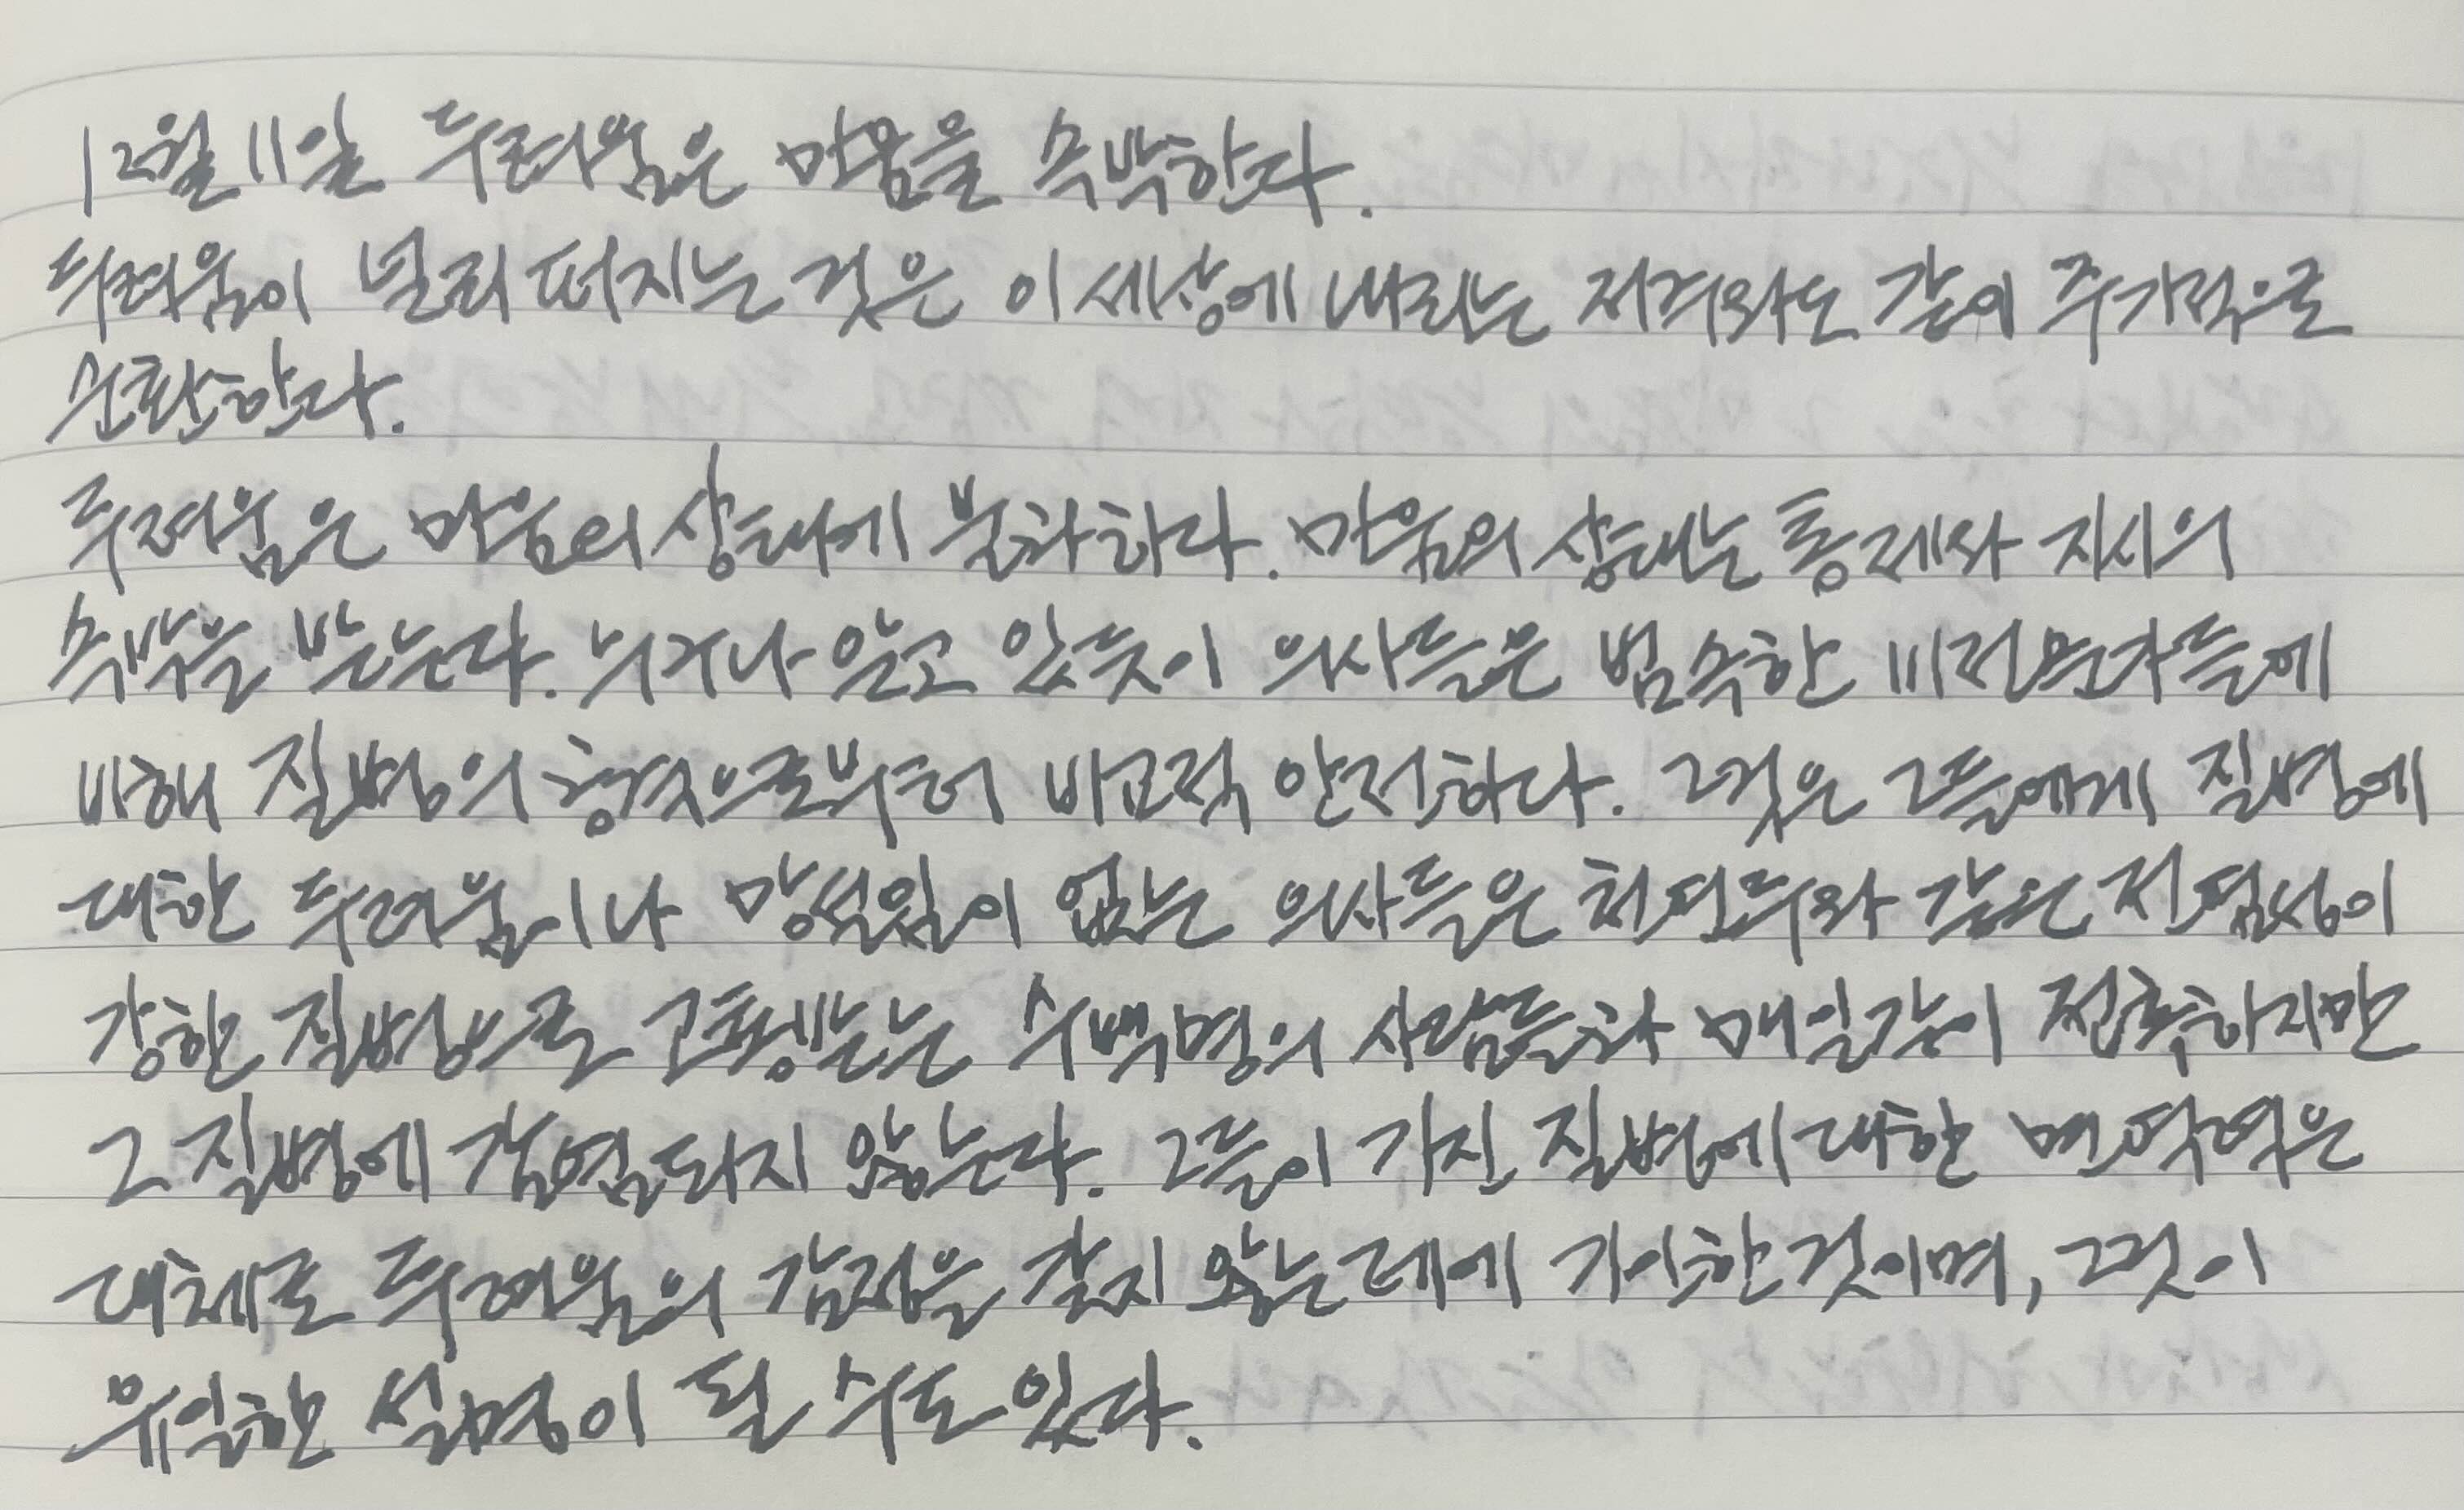 12월 11일 두려움은 마음을 속박한다.
두려움이 널리 퍼지는 것은 이 세상에 내리는 저주와도 같이 주기적으로
순환한다.
두려움은 마음의 상태에 불과하다. 마음의 상태는 통제와 지시의
속박을 받는다. 누구나 알고 있듯이 의사들은 범속한 비전문가들에
비해 질병의 형극으로부터 비교적 안전하다. 그것은 그들에게 질병에
대한 두려움이나 망설임이 없는 의사들은 천연두와 같은 전염성이
강한 질병으로 고통받는 수백명의 사람들과 매일같이 접촉하지만
그 질병에 감염되지 않는다. 그들이 가진 질병에 대한 면역력은
대체로 두려움의 감정을 갖지 않는데에 기인한 것이며, 그것이
유일한 설명이 될 수도 있다.